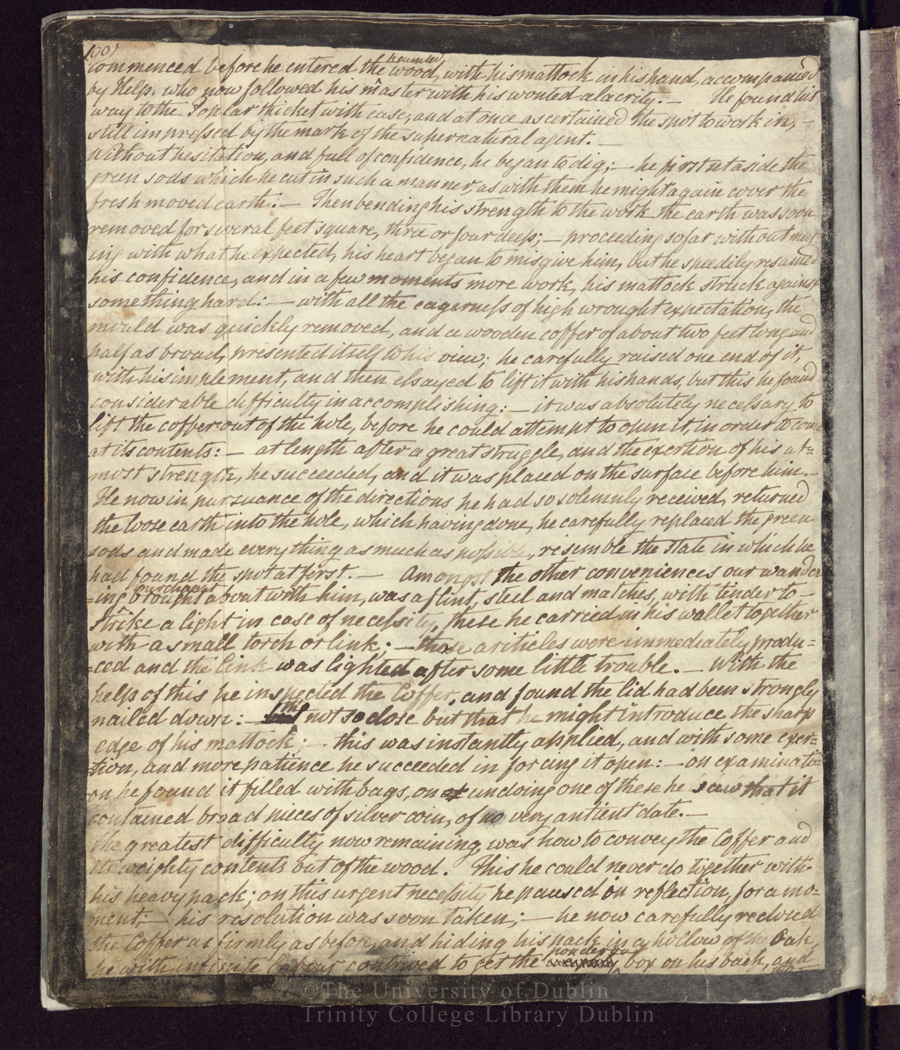 100)
commenced before he entered the haunted wood, with his mattock in his hand, accompanied
by help, who now followed his master with his wonted alacrity. — He found his
way to the Poplar thicket with ease, and at once ascertained the spot to work in, —
still impressed by the mark of the supernatural agent. —
Without hesitation, and full of confidence, he began to dig; — he first set aside the
green sods which he cut in such a manner, as with them he might again cover the
fresh moved earth. — Then bending his strength to the work the earth was soon
removed for several feet square, three or four deep; — proceeding so far without meet
ing with what he expected, his heart began to misgive him, but he speedily resumed
his confidence, and in a few moments more work, his mattock struck against
something hard: — with all the eagerness of high wrought expectation, the
mould was quickly removed, and a wooden coffer of about two feet long and
half as broad, presented itself to his view; he carefully raised one end of it,
with his implement, and then essayed to lift it with his hands, but this he found
considerable difficulty in accomplishing: — it was absolutely necessary to
lift the coffer out of the hole, before he could attempt to open it, in order to come
at its contents: — at length after a great struggle, and the exertion of his ut=
most strength, he succeeded, and it was placed on the surface before him. —
He now in pursuance of the directions he had so solemnly received, returned
the loose earth into the hole, which having done, he carefully replaced the green
sods and made every thing as much as possible, resemble the state in which he
had found the spot at first. — Amongst the other conveniences our wander
=ing merchant brought about with him, was a flint, steel and matches, with tinder to —
strike a light in case of necessity, these he carried in his wallet together
with a small torch or link; — those articles were immediately produ=
=ced and the link was lighted after some little trouble. — With the
help of this he inspected the Coffer, and found the lid had been strongly
nailed down: — tho not so close but that he might introduce the sharp
edge of his mattock; — this was instantly applied, and with some exer=
=tion, and more patience he succeeded in forcing it open: — on examinati=
on he found it filled with bags, on undoing one of these he saw that it
contained broad pieces of silver coin, of no very antient date. —
the greatest difficulty now remaining was how to convey the Coffer and
its weighty contents out of the wood. This he could never do together with
his heavy pack; on this urgent necessity he paused in reflection, for a mo=
ment; — his resolution was soon taken; — he now carefully reclosed
the Coffer as firmly as before, and hiding his pack in a hollow of the Oak,
he with infinite labour contrived to get the ponderous box on his back, and
©The University of Dublin
Trinity College Library Dublin